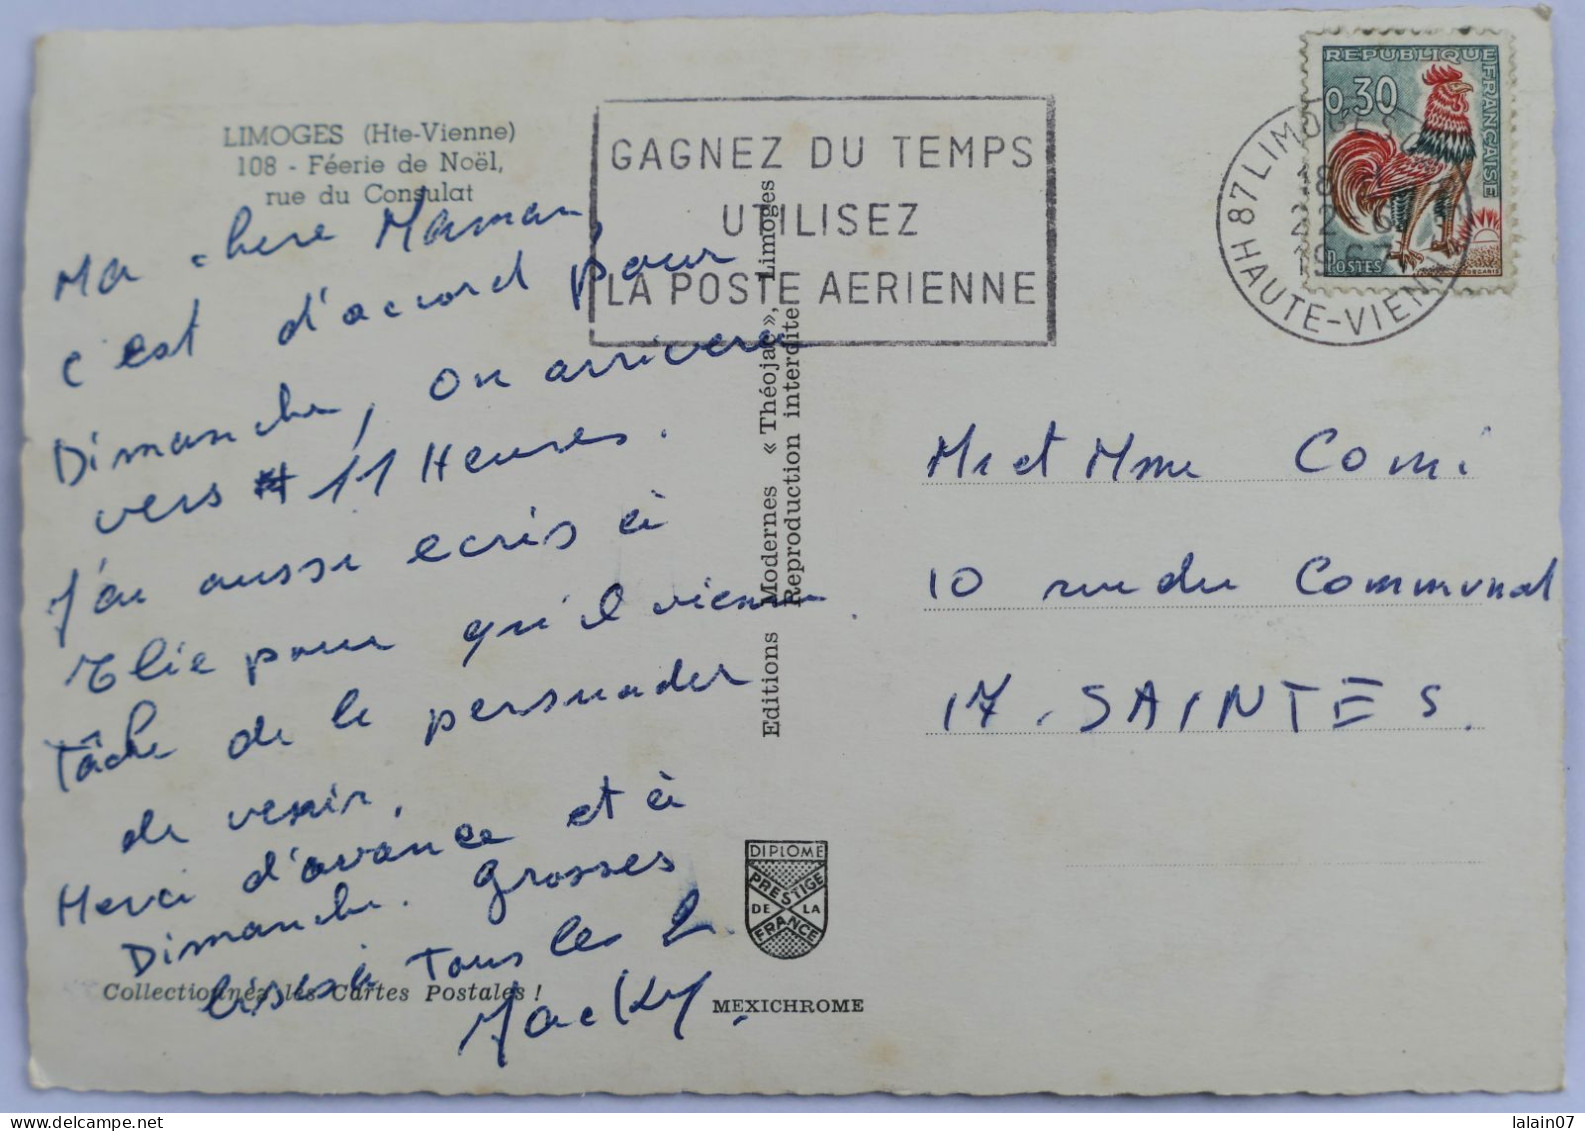 LIMOGES (Hte-Vienne)
108 - Féerie de Noël,
rue du Consulat
Ma chere Maman,
c'est d'accord pour
Dimanche, on arrivera
vers 11 Heures.
J'ai aussi ecris à
Elie pour qu'il vienne.
Tâche de le persuader
de venir.
Merci d'avance et à
Dimanche. Grosses
bises à Tous les 2
Jacky.
Collectionnez les Cartes Postales !
GAGNEZ DU TEMPS
UTILISEZ
LA POSTE AERIENNE
Editions Modernes « Théojac », Limoges
Reproduction interdite
DIPLOME
PRESTIGE
DE LA
FRANCE
MEXICHROME
REPUBLIQUE FRANÇAISE
0,30
POSTES
DECARIS
87 LIMOGES
18 H
22 - 6
1967
HAUTE-VIENNE
Mr et Mme Comi
10 rue du Communal
17. SAINTES.
lalain07